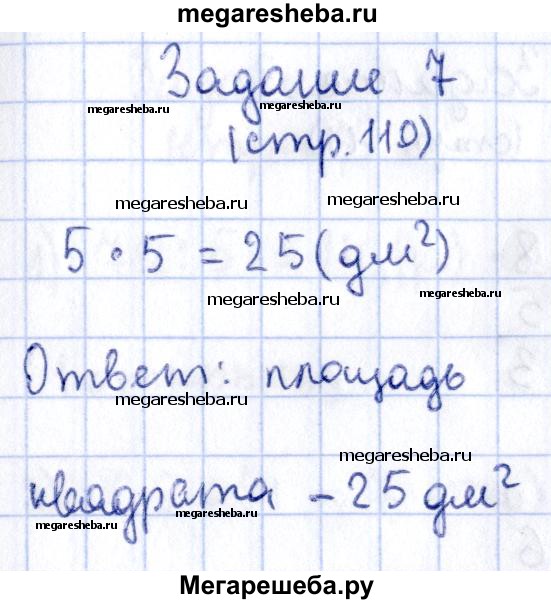 megaresheba.ru
Задание 7
megaresheba.ru megaresheba.ru
(стр. 110)
megaresheba.ru
megaresheba.ru
5 · 5 = 25 (дм²)
megaresheba.ru
megaresheba.ru
Ответ: площадь
megaresheba.ru
megaresheba.ru
квадрата - 25 дм²
megaresheba.ru
megaresheba.ru
Мегарешеба.ру